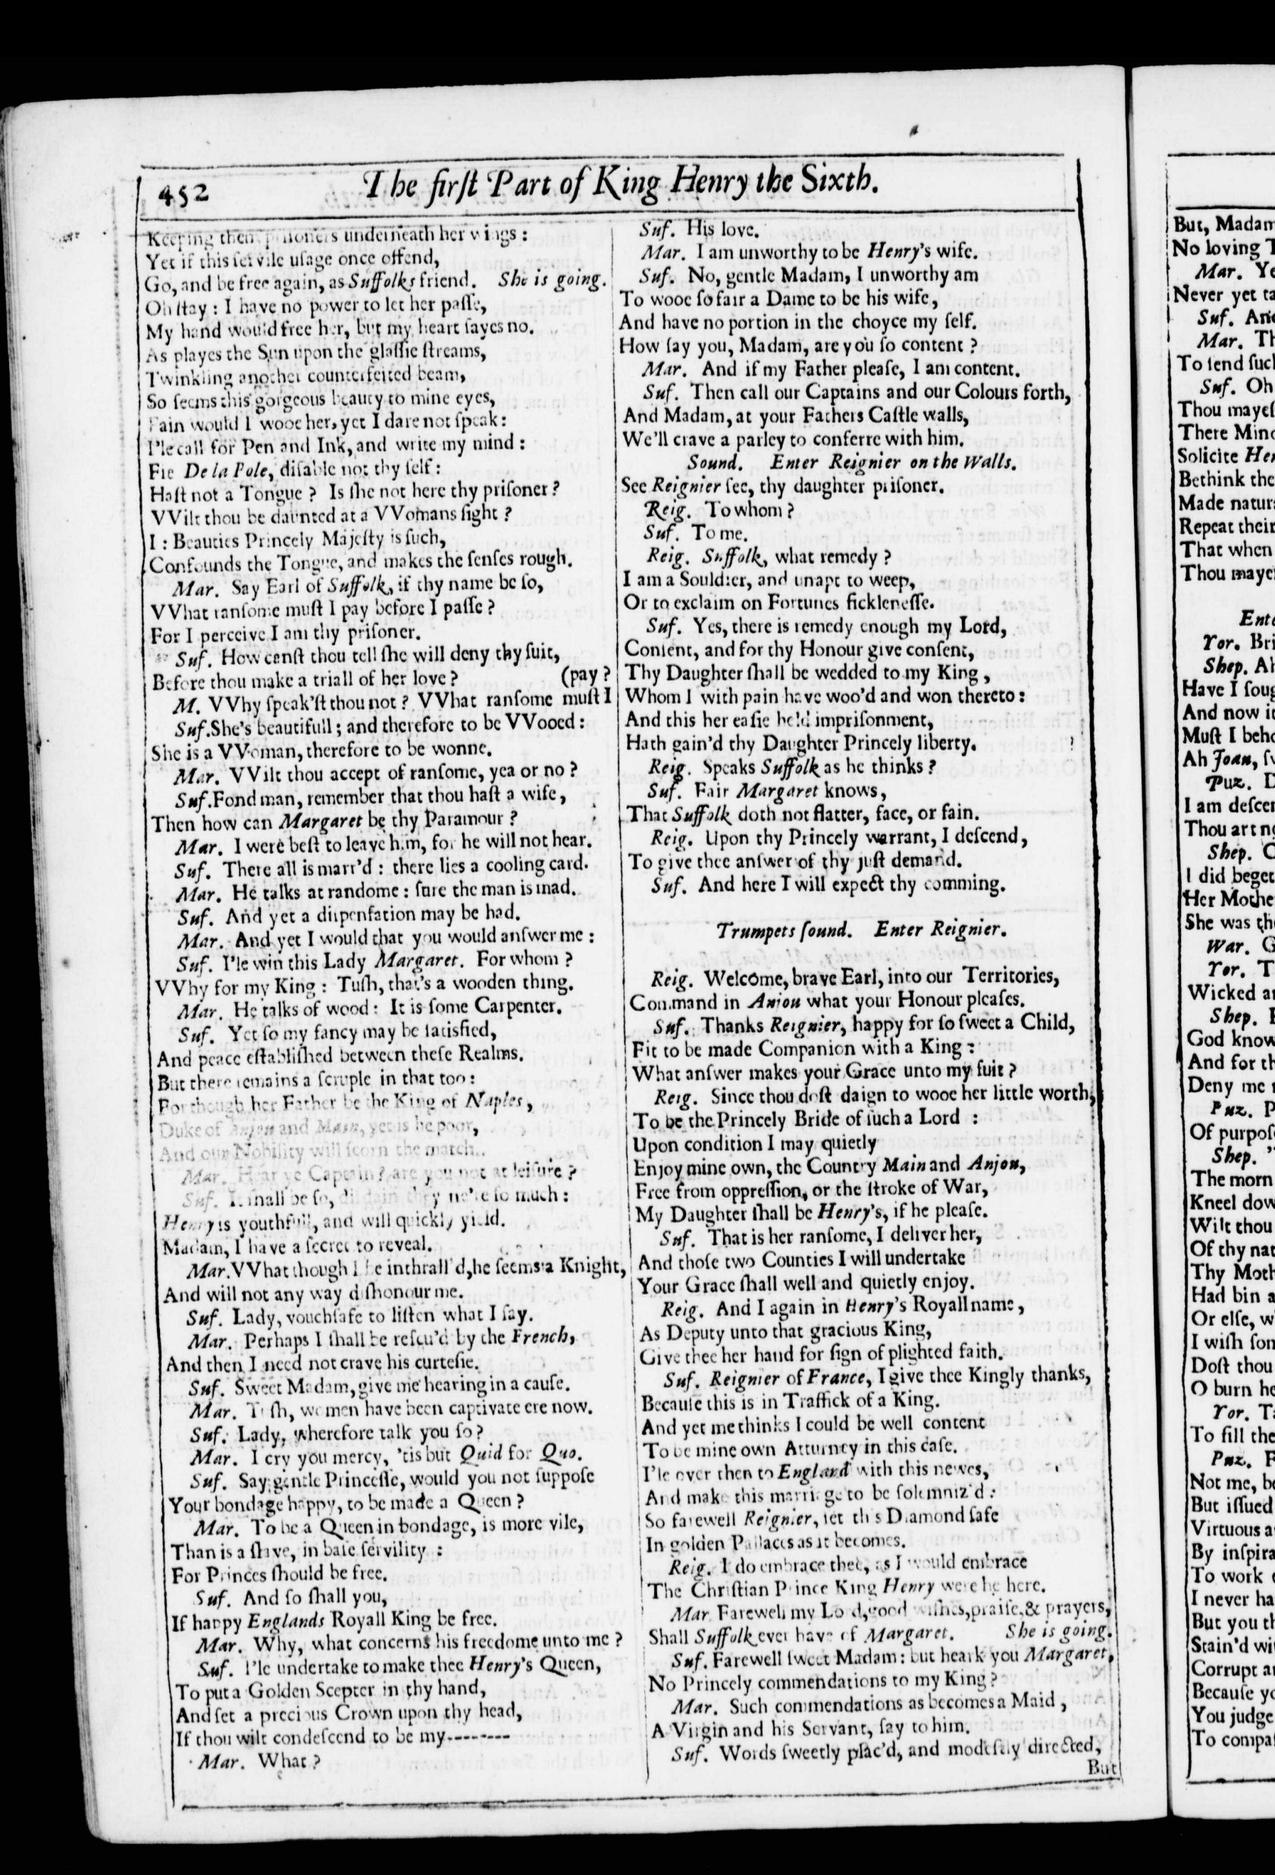 452
The firſt Part of King Henry the Sixth.
Keeping them priſoners underneath her wings:
Yet if this ſervile uſage once offend,
Go, and be free again, as Suffolks friend. She is going.
Oh ſtay: I have no power to let her paſſe,
My hand would free her, but my heart ſayes no.
As playes the Sun upon the glaſſie ſtreams,
Twinkling another counterfeited beam,
So ſeems this gorgeous beauty to mine eyes,
Fain would I wooe her, yet I dare not ſpeak:
I'le call for Pen and Ink, and write my mind:
Fie De la Pole, diſable not thy ſelf:
Haſt not a Tongue? Is ſhe not here thy priſoner?
VVilt thou be daunted at a VVomans ſight?
I: Beauties Princely Majeſty is ſuch,
Confounds the Tongue, and makes the ſenſes rough.
Mar. Say Earl of Suffolk, if thy name be ſo,
VVhat ranſome muſt I pay before I paſſe?
For I perceive I am thy priſoner.
Suf. How canſt thou tell ſhe will deny thy ſuit,
Before thou make a triall of her love? (pay?
M. VVhy ſpeak'ſt thou not? VVhat ranſome muſt I
Suf. She's beautifull; and therefore to be VVooed:
She is a VVoman, therefore to be wonne.
Mar. VVilt thou accept of ranſome, yea or no?
Suf. Fond man, remember that thou haſt a wife,
Then how can Margaret be thy Paramour?
Mar. I were beſt to leave him, for he will not hear.
Suf. There all is marr'd: there lies a cooling card.
Mar. He talks at randome: ſure the man is mad.
Suf. And yet a diſpenſation may be had.
Mar. And yet I would that you would anſwer me:
Suf. I'le win this Lady Margaret. For whom?
VVhy for my King: Tuſh, that's a wooden thing.
Mar. He talks of wood: It is ſome Carpenter.
Suf. Yet ſo my fancy may be ſatisfied,
And peace eſtabliſhed between theſe Realms.
But there remains a ſcruple in that too:
For though her Father be the King of Naples,
Duke of Anjou and Main, yet is he poor,
And our Nobility will ſcorn the match.
Mar. Hear ye Captain? are you not at leiſure?
Suf. It ſhall be ſo, diſdain they ne're ſo much:
Henry is youthfull, and will quickly yield.
Madam, I have a ſecret to reveal.
Mar. VVhat though I be inthrall'd, he ſeems a Knight,
And will not any way diſhonour me.
Suf. Lady, vouchſafe to liſten what I ſay.
Mar. Perhaps I ſhall be reſcu'd by the French,
And then I need not crave his curteſie.
Suf. Sweet Madam, give me hearing in a cauſe.
Mar. Tuſh, women have been captivate ere now.
Suf. Lady, wherefore talk you ſo?
Mar. I cry you mercy, 'tis but Quid for Quo.
Suf. Say gentle Princeſſe, would you not ſuppoſe
Your bondage happy, to be made a Queen?
Mar. To be a Queen in bondage, is more vile,
Than is a ſlave, in baſe ſervility:
For Princes ſhould be free.
Suf. And ſo ſhall you,
If happy Englands Royall King be free.
Mar. Why, what concerns his freedome unto me?
Suf. I'le undertake to make thee Henry's Queen,
To put a Golden Scepter in thy hand,
And ſet a precious Crown upon thy head,
If thou wilt condeſcend to be my--------
Mar. What?
Suf. His love.
Mar. I am unworthy to be Henry's wife.
Suf. No, gentle Madam, I unworthy am
To wooe ſo fair a Dame to be his wife,
And have no portion in the choyce my ſelf.
How ſay you, Madam, are you ſo content?
Mar. And if my Father pleaſe, I am content.
Suf. Then call our Captains and our Colours forth,
And Madam, at your Fathers Caſtle walls,
We'll crave a parley to conferre with him.
Sound. Enter Reignier on the Walls.
See Reignier ſee, thy daughter priſoner.
Reig. To whom?
Suf. To me.
Reig. Suffolk, what remedy?
I am a Souldier, and unapt to weep,
Or to exclaim on Fortunes fickleneſſe.
Suf. Yes, there is remedy enough my Lord,
Conſent, and for thy Honour give conſent,
Thy Daughter ſhall be wedded to my King,
Whom I with pain have woo'd and won thereto:
And this her eaſie held impriſonment,
Hath gain'd thy Daughter Princely liberty.
Reig. Speaks Suffolk as he thinks?
Suf. Fair Margaret knows,
That Suffolk doth not flatter, face, or fain.
Reig. Upon thy Princely warrant, I deſcend,
To give thee anſwer of thy juſt demand.
Suf. And here I will expect thy comming.
Trumpets ſound. Enter Reignier.
Reig. Welcome, brave Earl, into our Territories,
Command in Anjou what your Honour pleaſes.
Suf. Thanks Reignier, happy for ſo ſweet a Child,
Fit to be made Companion with a King:
What anſwer makes your Grace unto my ſuit?
Reig. Since thou doſt daign to wooe her little worth,
To be the Princely Bride of ſuch a Lord:
Upon condition I may quietly
Enjoy mine own, the Country Main and Anjou,
Free from oppreſſion, or the ſtroke of War,
My Daughter ſhall be Henry's, if he pleaſe.
Suf. That is her ranſome, I deliver her,
And thoſe two Counties I will undertake
Your Grace ſhall well and quietly enjoy.
Reig. And I again in Henry's Royall name,
As Deputy unto that gracious King,
Give thee her hand for ſign of plighted faith.
Suf. Reignier of France, I give thee Kingly thanks,
Becauſe this is in Traffick of a King.
And yet me thinks I could be well content
To be mine own Atturney in this caſe.
I'le over then to England with this newes,
And make this marriage to be ſolemniz'd:
So farewell Reignier, ſet this Diamond ſafe
In golden Pallaces as it becomes.
Reig. I do embrace thee, as I would embrace
The Chriſtian Prince King Henry were he here.
Mar. Farewell my Lord, good wiſhes, praiſe, & prayers,
Shall Suffolk ever have of Margaret. She is going.
Suf. Farewell ſweet Madam: but heark you Margaret,
No Princely commendations to my King?
Mar. Such commendations as becomes a Maid,
A Virgin and his Servant, ſay to him.
Suf. Words ſweetly plac'd, and modeſtly directed,
But
But, Madam
No loving
Mar.
Never yet
Suf.
Mar.
To ſend
Suf. Oh
Thou
There
Solicite
Bethink
Made
Repeat their
That when
Thou
Yor.
Shep.
Have I
And now
Muſt I
Ah Joan,
Puz.
I am
Thou art
Shep.
I did
Her
She was
War.
Yor.
Wicked
Shep.
God
And for
Deny me
Puz.
Of
Shep.
The morn
Kneel
Wilt thou
Of thy
Thy
Had bin a
Or elſe,
I wiſh
Doſt thou
O burn
Yor.
To fill the
Puz.
Not me,
But iſſued
Virtuous
By
To work
I never
But you
Stain'd
Corrupt
Becauſe
You judge
To